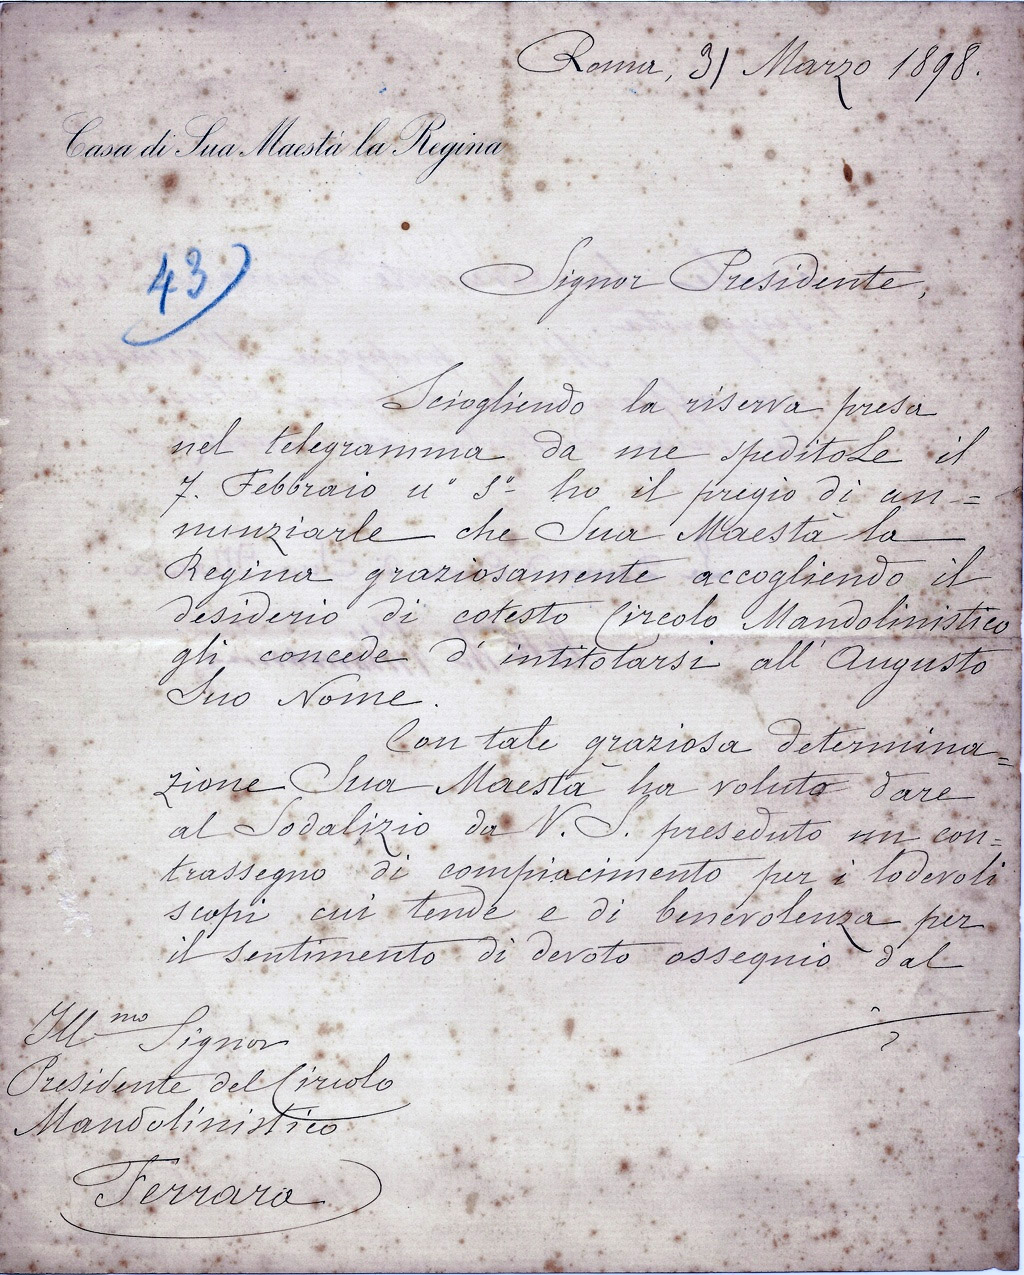 Roma, 31 Marzo 1898.
Casa di Sua Maestà la Regina
43
Signor Presidente,
Sciogliendo la riserva presa
nel telegramma da me speditoLe il
7. Febbraio u° s°- ho il pregio di an=
nunziarle che Sua Maestà la
Regina graziosamente accogliendo il
desiderio di cotesto Circolo Mandolinistico
gli concede d'intitolarsi all'Augusto
Suo Nome.
Con tale graziosa determina=
zione Sua Maestà ha voluto dare
al Sodalizio da V. S. preseduto un con=
trassegno di compiacimento per i lodevoli
scopi cui tende e di benevolenza per
il sentimento di devoto ossequio dal
Ill.mo Signor
Presidente del Circolo
Mandolinistico
Ferrara